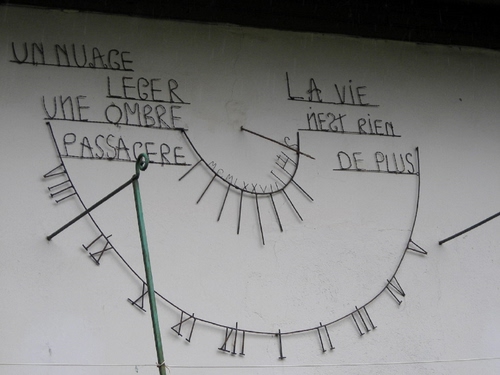 UN NUAGE
LEGER
UNE OMBRE
PASSAGERE
LA VIE
N'EST RIEN
DE PLUS
MCMLXXVIII
VIII
IX
X
XI
XII
I
II
III
IV
V